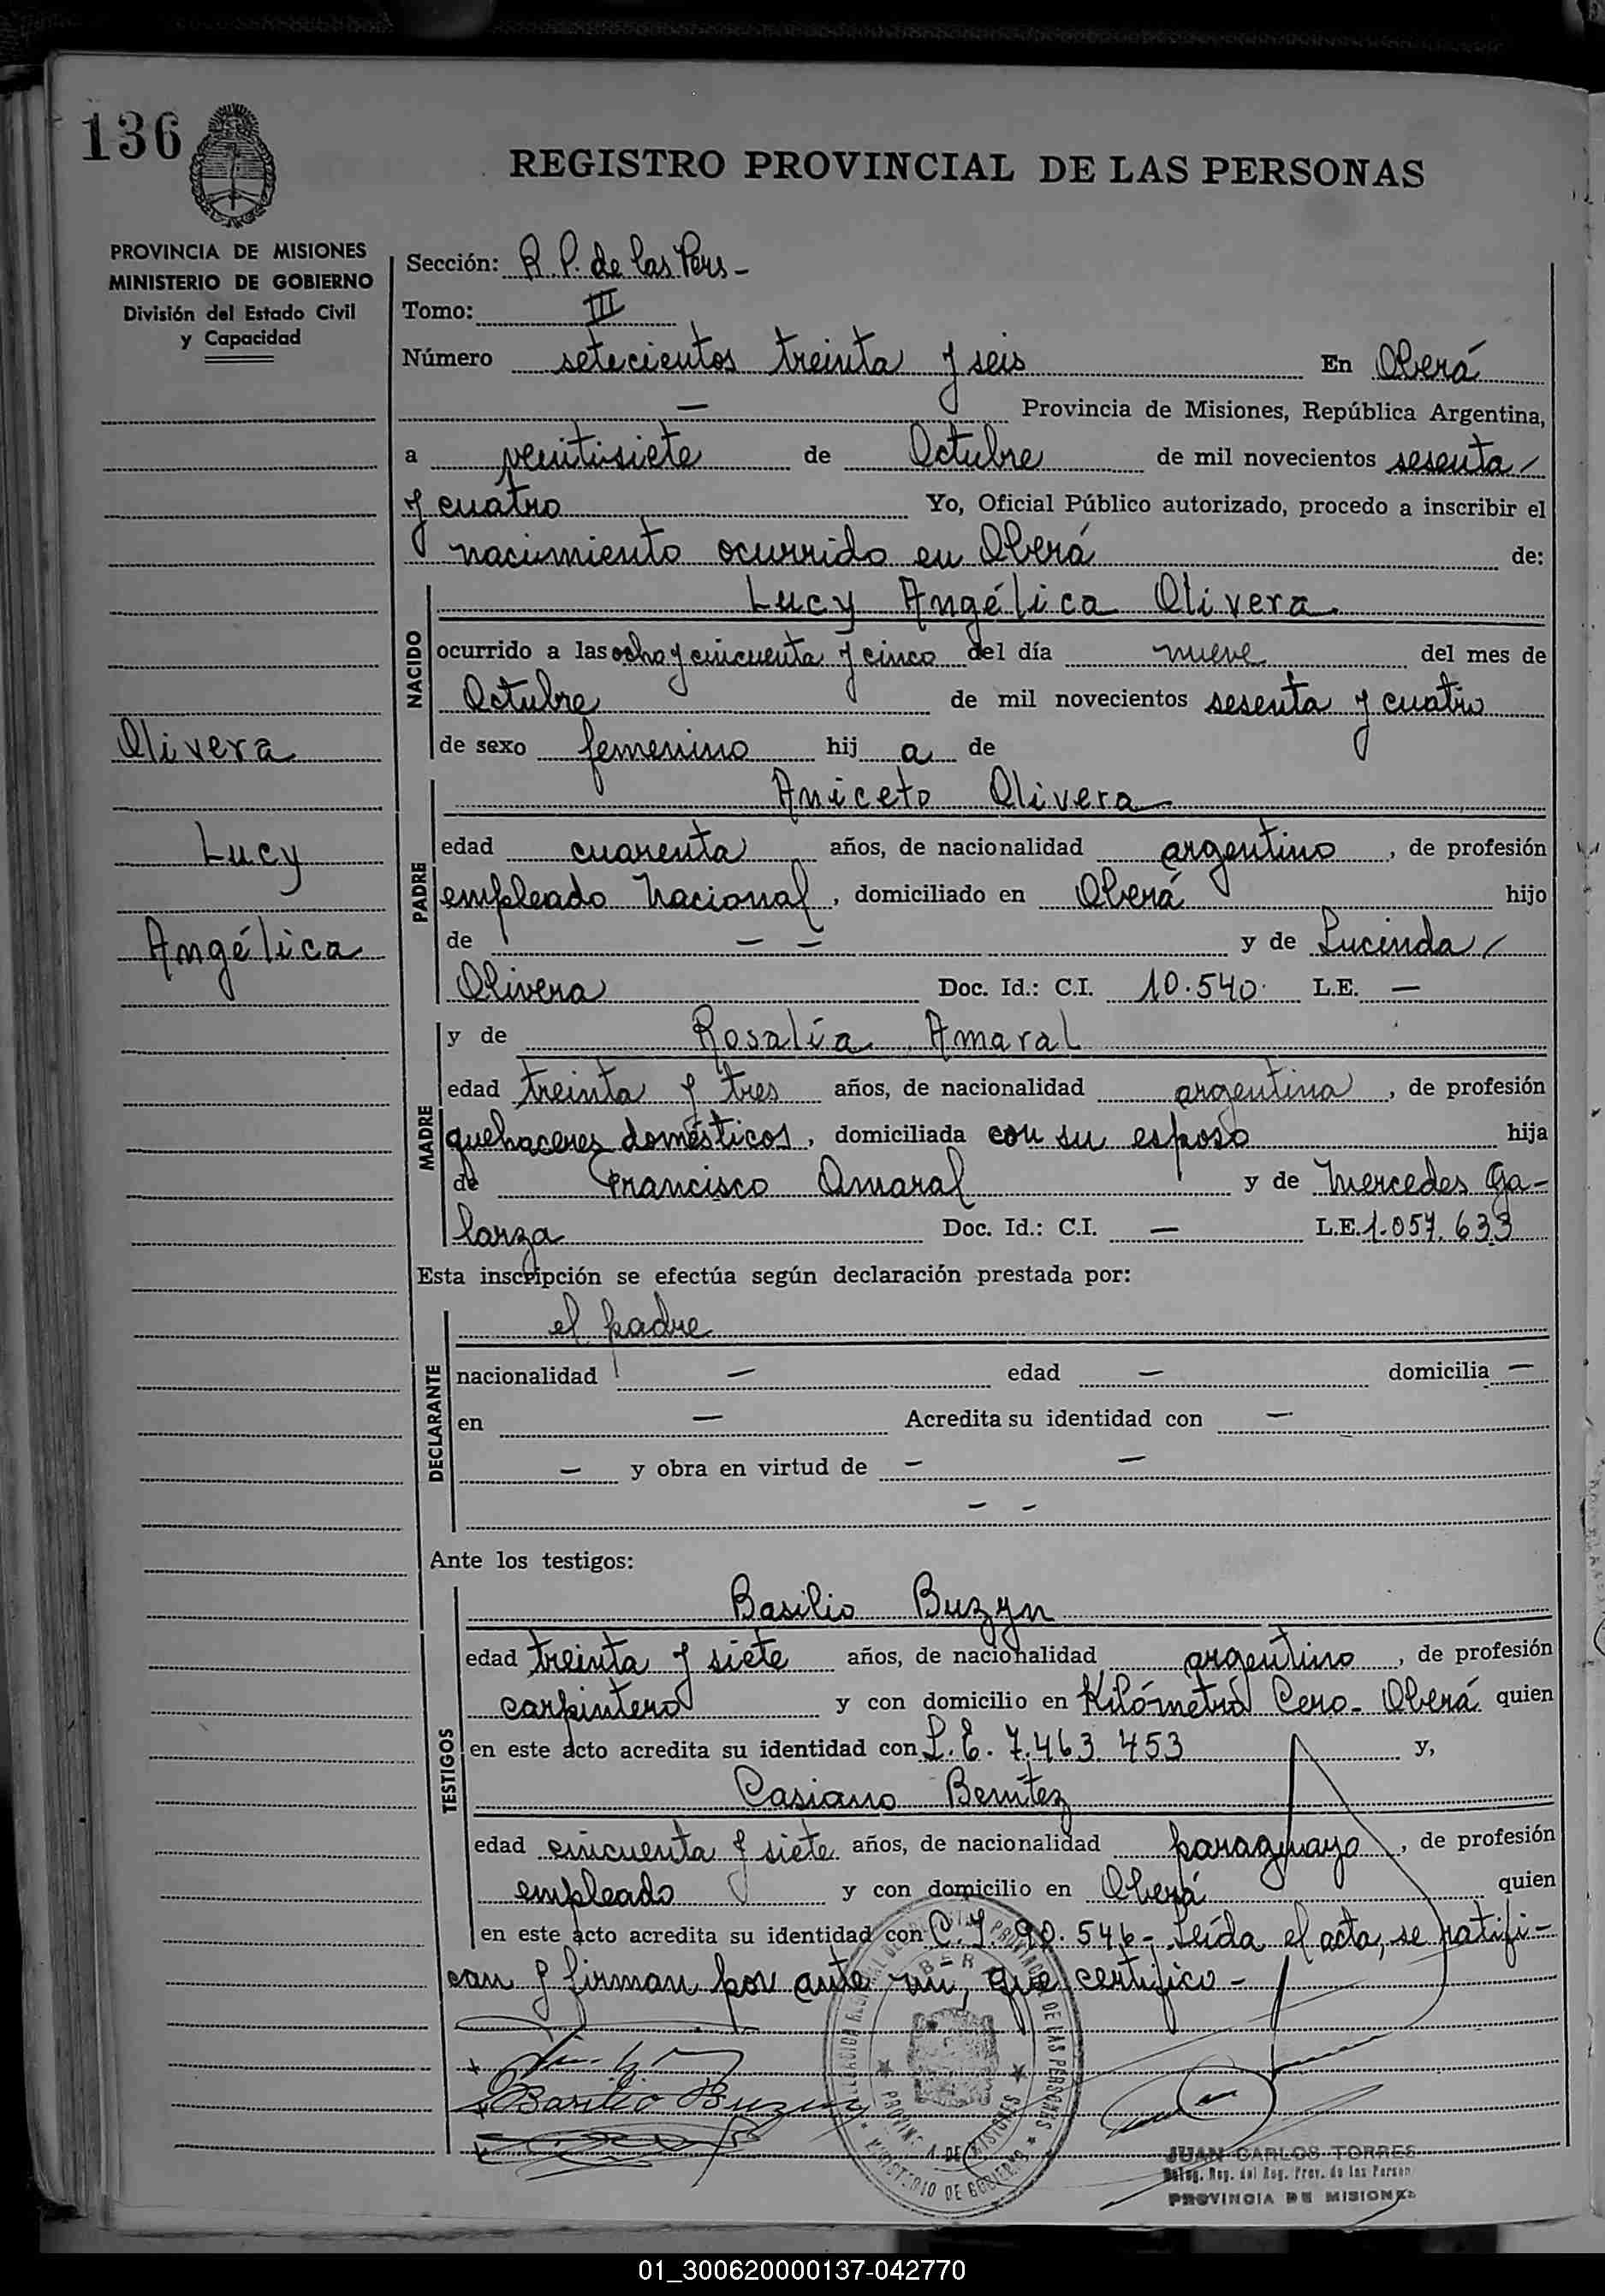 136
REGISTRO PROVINCIAL DE LAS PERSONAS
PROVINCIA DE MISIONES
MINISTERIO DE GOBIERNO
División del Estado Civil
y Capacidad
Olivera
Lucy
Angélica
Sección: R. P. de las Pers -
Tomo: III
Número setecientos treinta y seis En Oberá
— Provincia de Misiones, República Argentina,
a veintisiete de Octubre de mil novecientos sesenta /
y cuatro Yo, Oficial Público autorizado, procedo a inscribir el
nacimiento ocurrido en Oberá de:
NACIDO
Lucy Angélica Olivera
ocurrido a las ocho y cincuenta y cinco del día nueve del mes de
Octubre de mil novecientos sesenta y cuatro
de sexo femenino hij a de
PADRE
Aniceto Olivera
edad cuarenta años, de nacionalidad argentino, de profesión
empleado nacional, domiciliado en Oberá hijo
de — — y de Lucinda /
Olivera Doc. Id.: C.I. 10.540 L.E. —
MADRE
y de Rosalía Amaral
edad treinta y tres años, de nacionalidad argentina, de profesión
quehaceres domésticos, domiciliada con su esposo hija
de Francisco Amaral y de Mercedes Ga-
larza Doc. Id.: C.I. — L.E. 1.057.633
Esta inscripción se efectúa según declaración prestada por:
DECLARANTE
el padre
nacionalidad — edad — domicilia —
en — Acredita su identidad con —
— y obra en virtud de — —
— —
Ante los testigos:
TESTIGOS
Basilio Buzyn
edad treinta y siete años, de nacionalidad argentino, de profesión
carpintero y con domicilio en Kilómetro Cero - Oberá quien
en este acto acredita su identidad con L. E. 7.463.453 y,
Casiano Benítez
edad cincuenta y siete años, de nacionalidad paraguayo, de profesión
empleado y con domicilio en Oberá quien
en este acto acredita su identidad con C. I. 90.546 - Leída el acta, se ratifi-
can y firman por ante mi, que certifico -
Basilio Buzyn
PROVINCIA DE MISIONES
MINISTERIO DE GOBIERNO
JUAN CARLOS TORRES
Deleg. Reg. del Reg. Prov. de las Person
PROVINCIA DE MISIONES
01_300620000137-042770